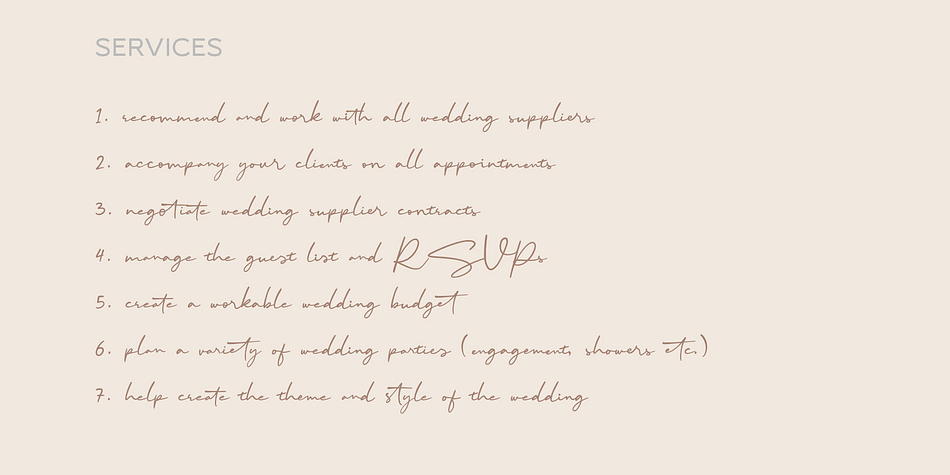 SERVICES
1. recommend and work with all wedding suppliers
2. accompany your clients on all appointments
3. negotiate wedding supplier contracts
4. manage the guest list and RSVPs
5. create a workable wedding budget
6. plan a variety of wedding parties (engagement, showers etc.)
7. help create the theme and style of the wedding